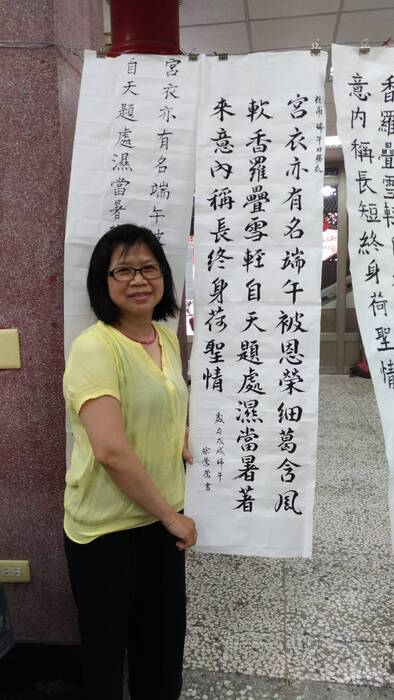 香羅疊雪輕
意內稱長短終身荷聖情
杜甫 端午日賜衣
宮衣亦有名端午被恩榮細葛含風
軟香羅疊雪輕自天題處濕當暑著
來意內稱長終身荷聖情
戊戌端午
徐鶯鶯書
宮衣亦有名端午被
自天題處濕當暑